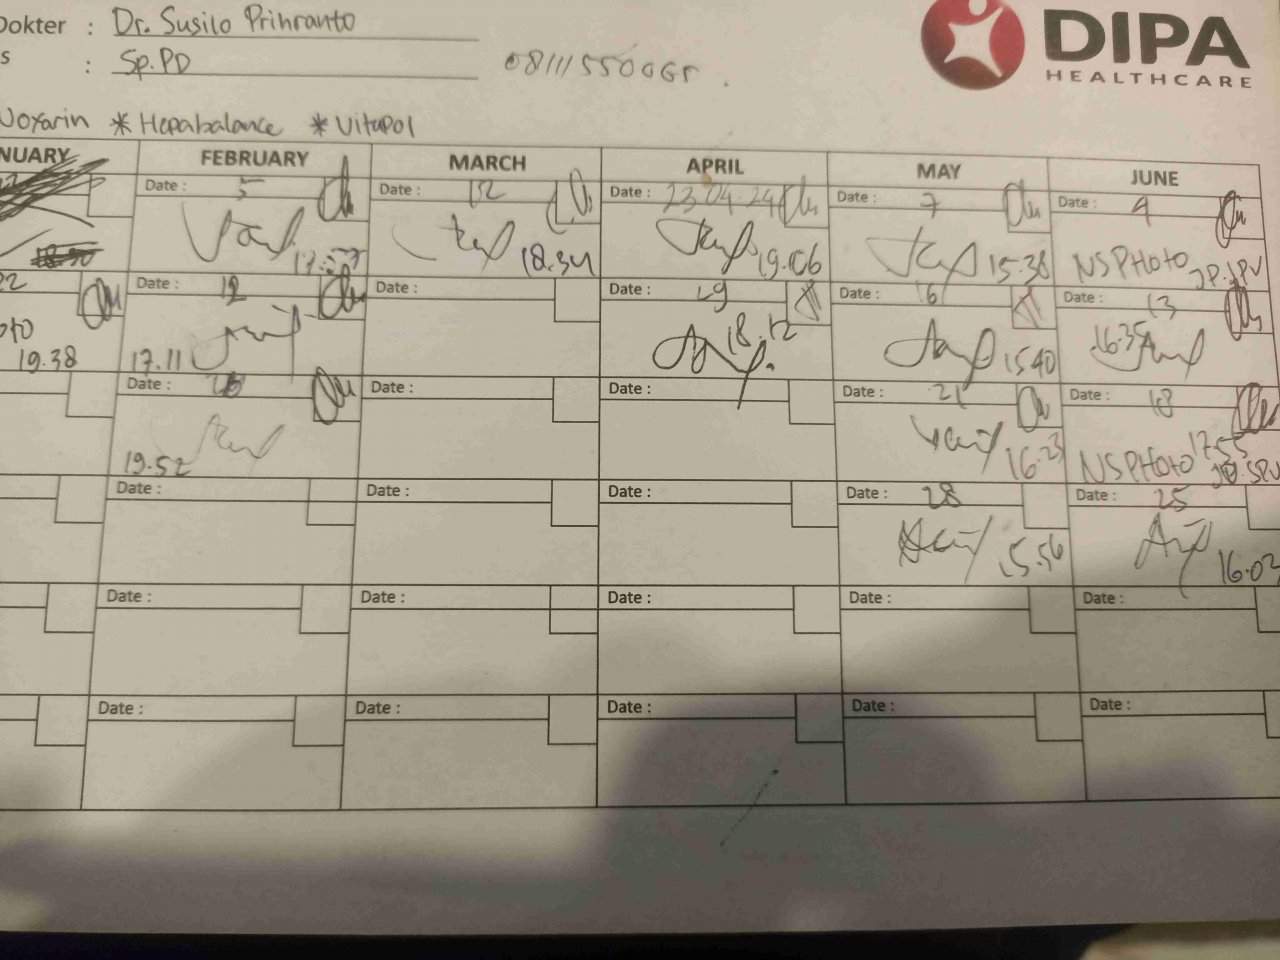 Dokter : Dr. Susilo Prihranto
s : Sp.PD 08111550065
DIPA
HEALTHCARE
Voxarin * Hepabalance * Vitapol
NUARY FEBRUARY MARCH APRIL MAY JUNE
Date : 5 Date : 12 Date : 23 04 24 Date : 7 Date : 4
18.30 18.34 19.06 15.38 NSPHOTO
22 Date : 12 Date : Date : 29 Date : 16 Date : 13
oto 19.38 17.11 18.12 1540 16.35
Date : Date : Date : Date : 21 Date : 18
19.52 16.23 NSPHOTO 17.55
Date : Date : Date : Date : 28 Date : 25
15.56 16.02
Date : Date : Date : Date : Date :
Date : Date : Date : Date : Date :